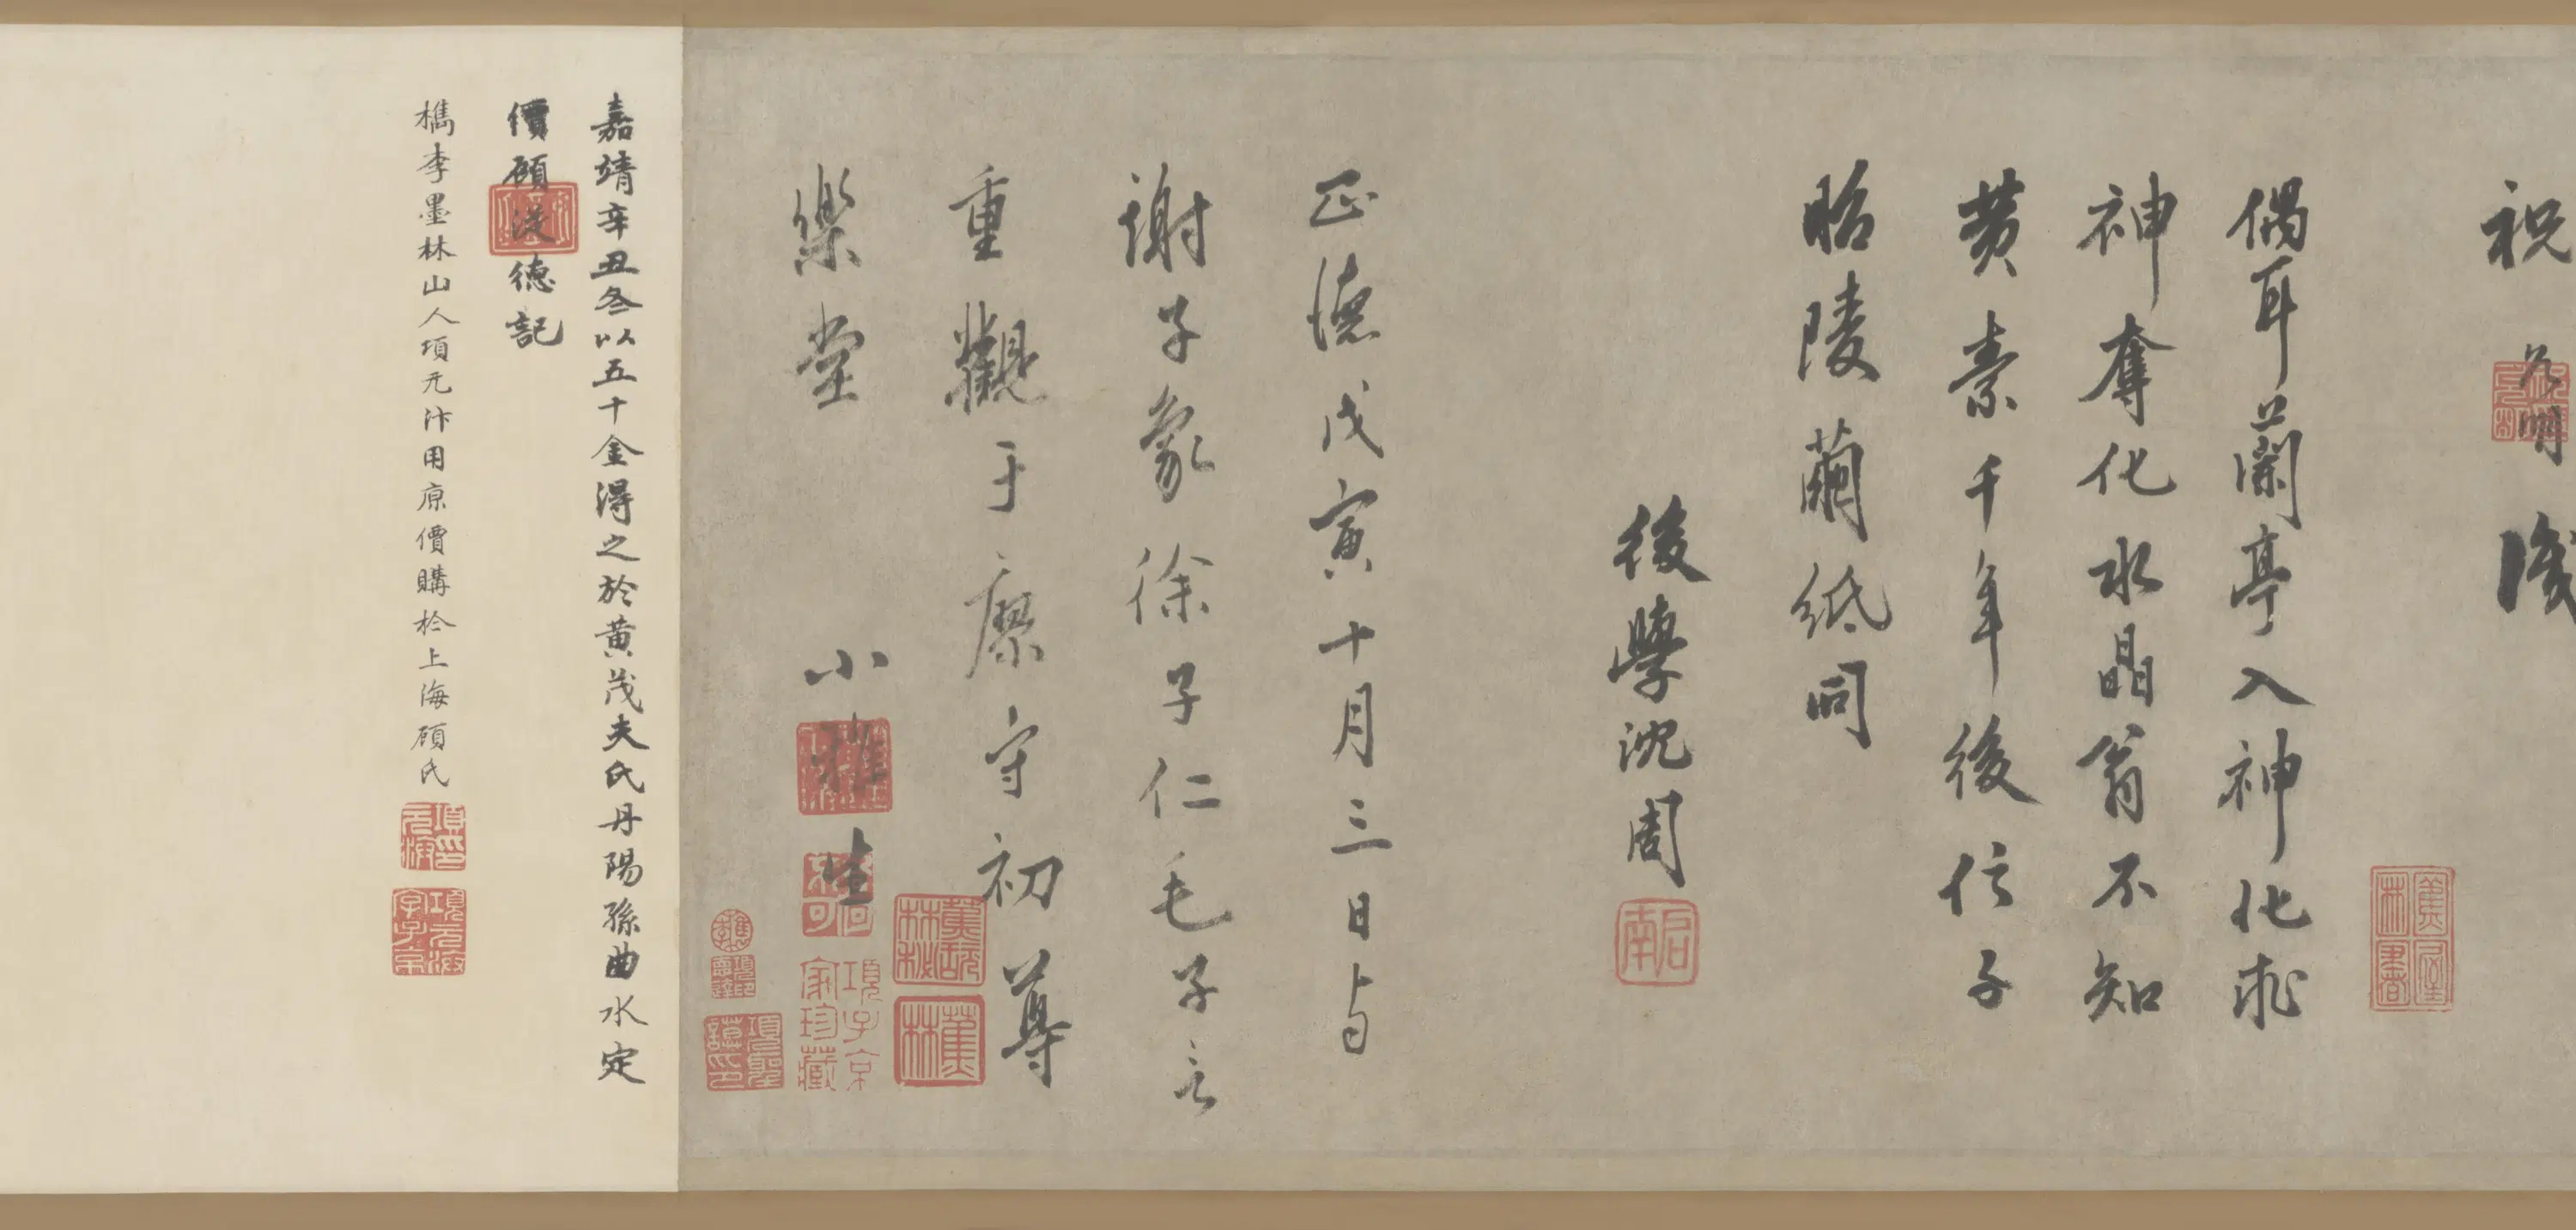 祝
偶耳蘭亭入神化龍
神奪化水晶翁不知
黄素千年後信子
昭陵繭紙同
後學沈周
君南
正德戊寅十月三日與
謝子象徐子仁毛子言
重觀于廖守初尊
樂堂
小雅生
項子京家珍藏
嘉靖辛丑冬以五十金得之於黄茂夫氏丹陽孫曲水定
價顧從德記
檇李墨林山人項元汴用原價購於上海顧氏